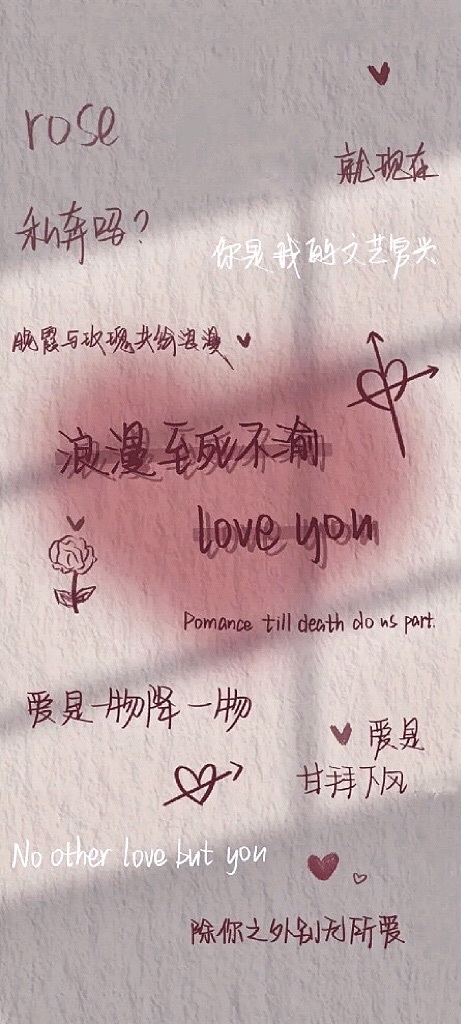 rose
就现在
私奔吗?
你是我的文艺复兴
晚霞与玫瑰共纷浪漫
浪漫至死不渝
love you
Pomance till death do us part.
爱是一物降一物
爱是
甘拜下风
No other love but you
除你之外别无所爱